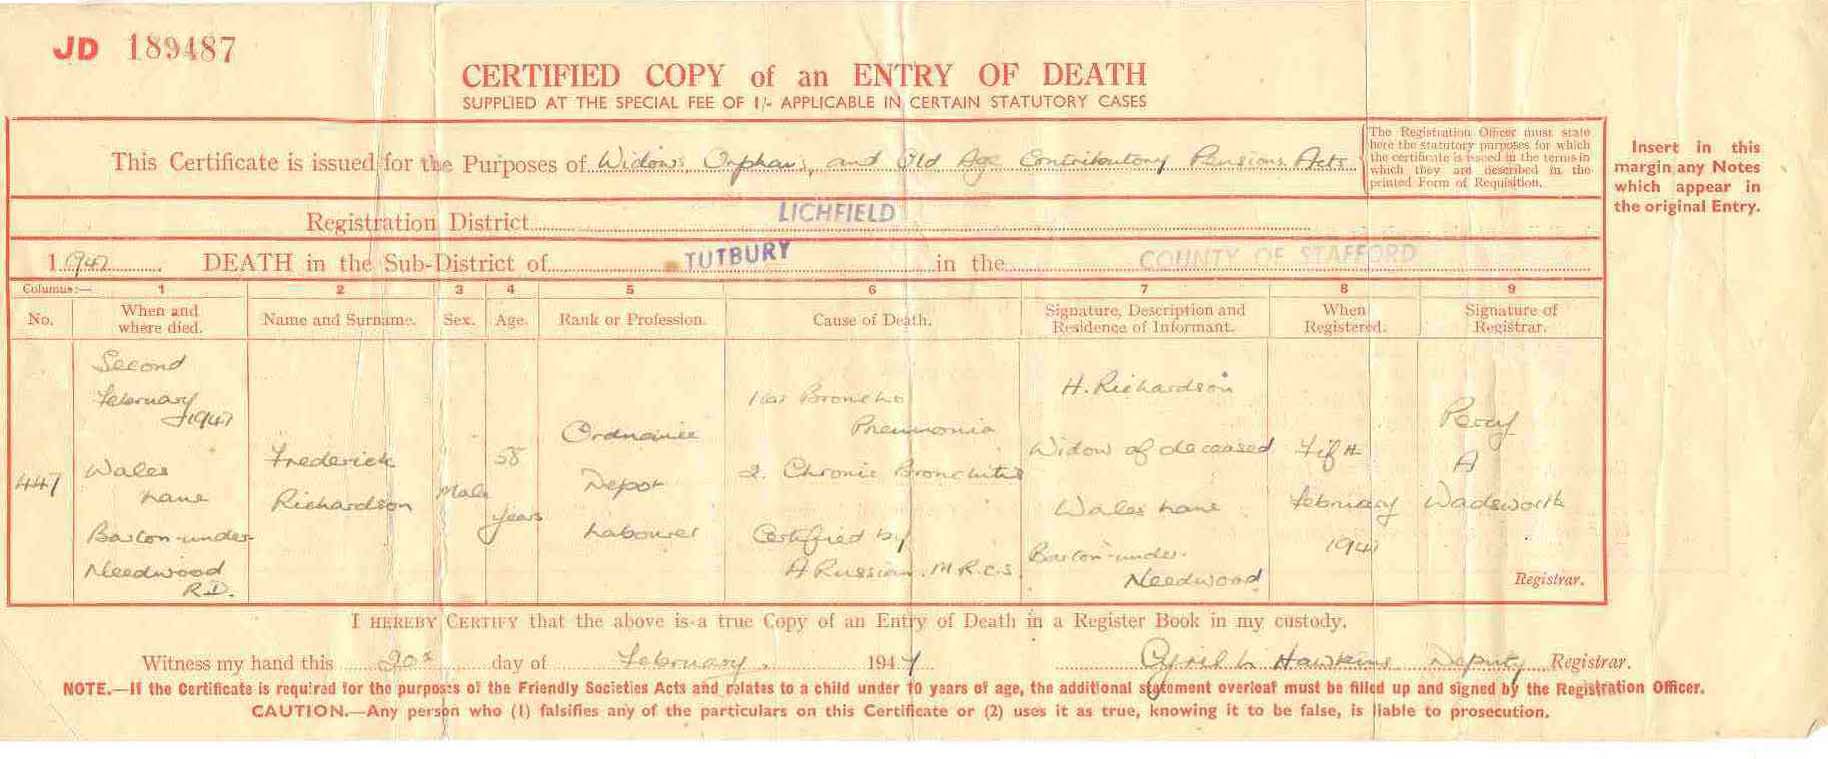 JD 189487
CERTIFIED COPY of an ENTRY OF DEATH
SUPPLIED AT THE SPECIAL FEE OF 1/- APPLICABLE IN CERTAIN STATUTORY CASES
This Certificate is issued for the Purposes of Widows, Orphans, and Old Age Contributory Pensions Acts
The Registration Officer must state
here the statutory purposes for which
the certificate is issued in the terms in
which they are described in the
printed Form of Requisition.
Insert in this
margin any Notes
which appear in
the original Entry.
Registration District LICHFIELD
1947 DEATH in the Sub-District of TUTBURY in the COUNTY OF STAFFORD
Columns:— 1 2 3 4 5 6 7 8 9
No.
When and
where died.
Name and Surname.
Sex.
Age.
Rank or Profession.
Cause of Death.
Signature, Description and
Residence of Informant.
When
Registered.
Signature of
Registrar.
447
Second
February
1947
Wales
Lane
Barton-under-
Needwood
R.D.
Frederick
Richardson
Male
58
years
Ordnance
Depot
Labourer
1(a) Broncho
Pneumonia
2. Chronic Bronchitis
Certified by
A Russian. M.R.C.S.
H. Richardson
Widow of deceased
Wales Lane
Barton-under-
Needwood
Fifth
February
1947
Percy
A
Wadsworth
Registrar.
I HEREBY CERTIFY that the above is a true Copy of an Entry of Death in a Register Book in my custody.
Witness my hand this 20th day of February. 1947 Cyril L Hawkins Deputy Registrar.
NOTE.—If the Certificate is required for the purposes of the Friendly Societies Acts and relates to a child under 10 years of age, the additional statement overleaf must be filled up and signed by the Registration Officer.
CAUTION.—Any person who (1) falsifies any of the particulars on this Certificate or (2) uses it as true, knowing it to be false, is liable to prosecution.